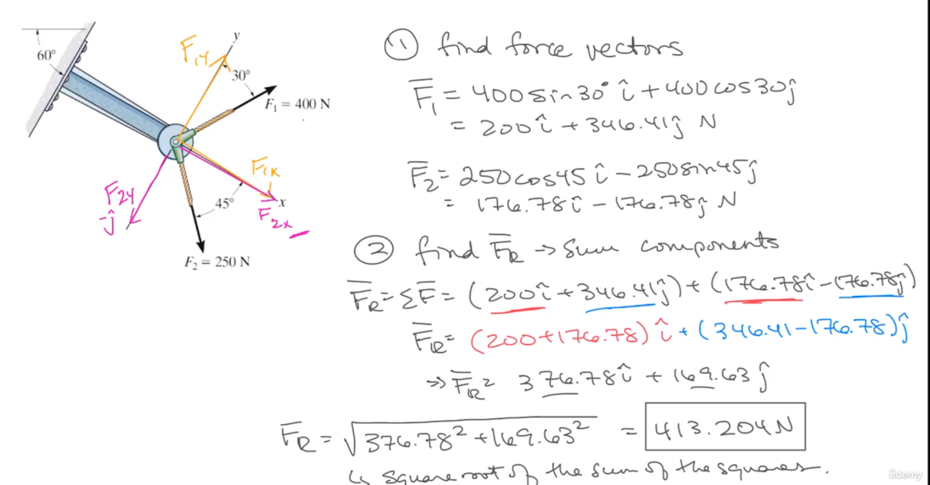 60°
y
F1Y
30°
F₁ = 400 N
F1x
F2Y
-ĵ
45°
x
F2x
F₂ = 250 N
① find force vectors
F̄₁ = 400sin30° î + 400cos30ĵ
= 200î + 346.41ĵ N
F̄₂ = 250cos45 î - 250sin45ĵ
= 176.78î - 176.78ĵ N
② find F̄R → Sum components
F̄R = ΣF̄ = (200î + 346.41ĵ) + (176.78î - 176.78ĵ)
F̄R = (200+176.78) î + (346.41-176.78)ĵ
⇒ F̄R = 376.78î + 169.63ĵ
F̄R = √376.78² + 169.63² = 413.204N
↳ square root of the sum of the squares.
ûdemy